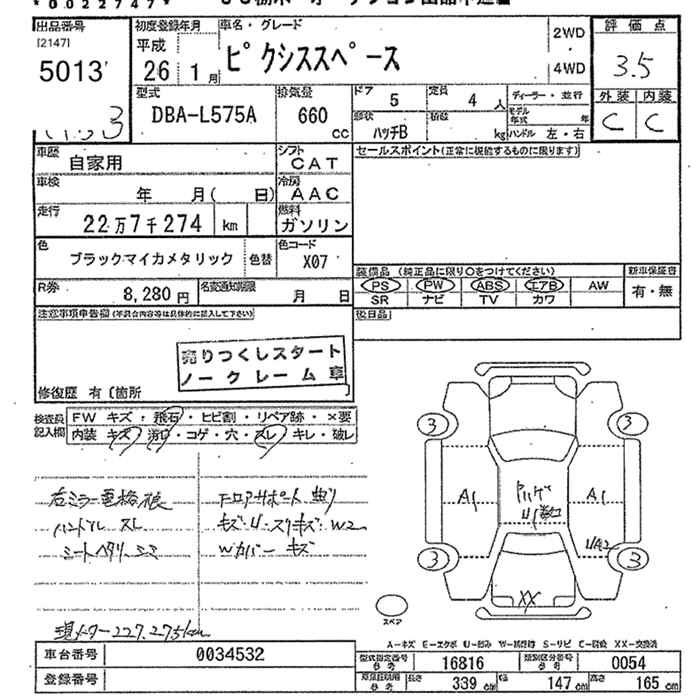 *0022747*
出品番号 初度登録年月 車名・グレード 評価点
[2147] 平成 2WD
5013 26 1月 ピクシススペース 4WD 3.5
型式 排気量 ドア 5 定員 4人 ディーラー・並行 外装 内装
DBA-L575A 660 cc 形状 ハッチB 積載 kg モデル年式 年 C C
ハンドル 左・右
車歴 自家用 シフト CAT セールスポイント(正常に機能するものに限ります)
車検 年 月( 日) 冷房 AAC
走行 22万7千274 km 燃料 ガソリン
色 ブラックマイカメタリック 色替 色コード X07
装備品 (純正品に限り○をつけてください) 新車保証書
R券 8,280円 名変通知期限 月 日 PS PW ABS エアB AW 有・無
SR ナビ TV カワ
注意事項申告欄(不具合内容等は具体的に記入して下さい) 後日品
売りつくしスタート
ノークレーム車
修復歴 有〔箇所 〕
検査員記入欄 FW キズ・飛石・ヒビ割・リペア跡・×要
内装 キズ・汚れ・コゲ・穴・スレ・キレ・破レ
右ミラー
ハンドル スレ
シートヘタリ シミ
フロアサポート 曲り
キズ・U・スリキズ W2
Wカバー キズ
現メーター 227,275km
3 3
A1 A1
3 3
XX
スペア
A-キズ E-エクボ U-凹み W-補修跡 S-サビ C-腐蝕 XX-交換済
車台番号 0034532 型式指定番号 参考 16816 類別区分番号 参考 0054
登録番号 長さ 339 cm 幅 147 cm 高さ 165 cm